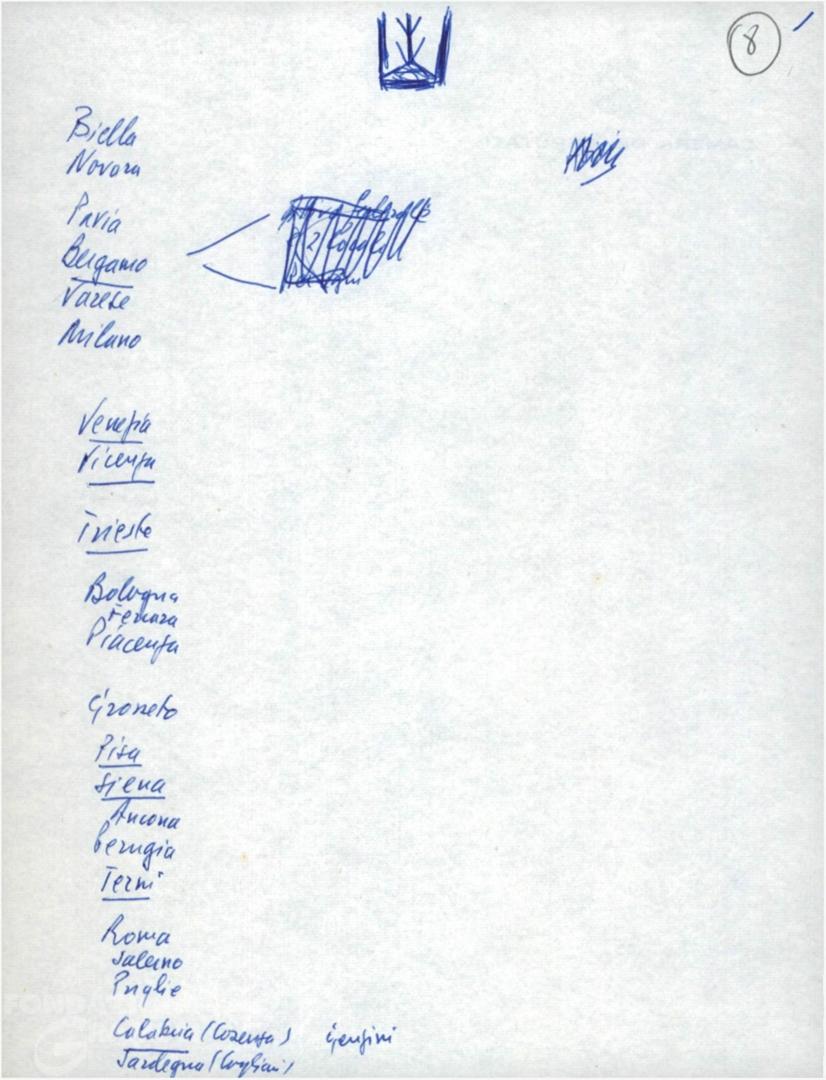 8
Biella
Novara
Pavia
Bergamo
Varese
Milano
Venezia
Vicenza
Trieste
Bologna
Ferrara
Piacenza
Grosseto
Pisa
Siena
Ancona
Perugia
Terni
Roma
Salerno
Puglie
Calabria (Cosenza)
Sardegna (Cagliari)